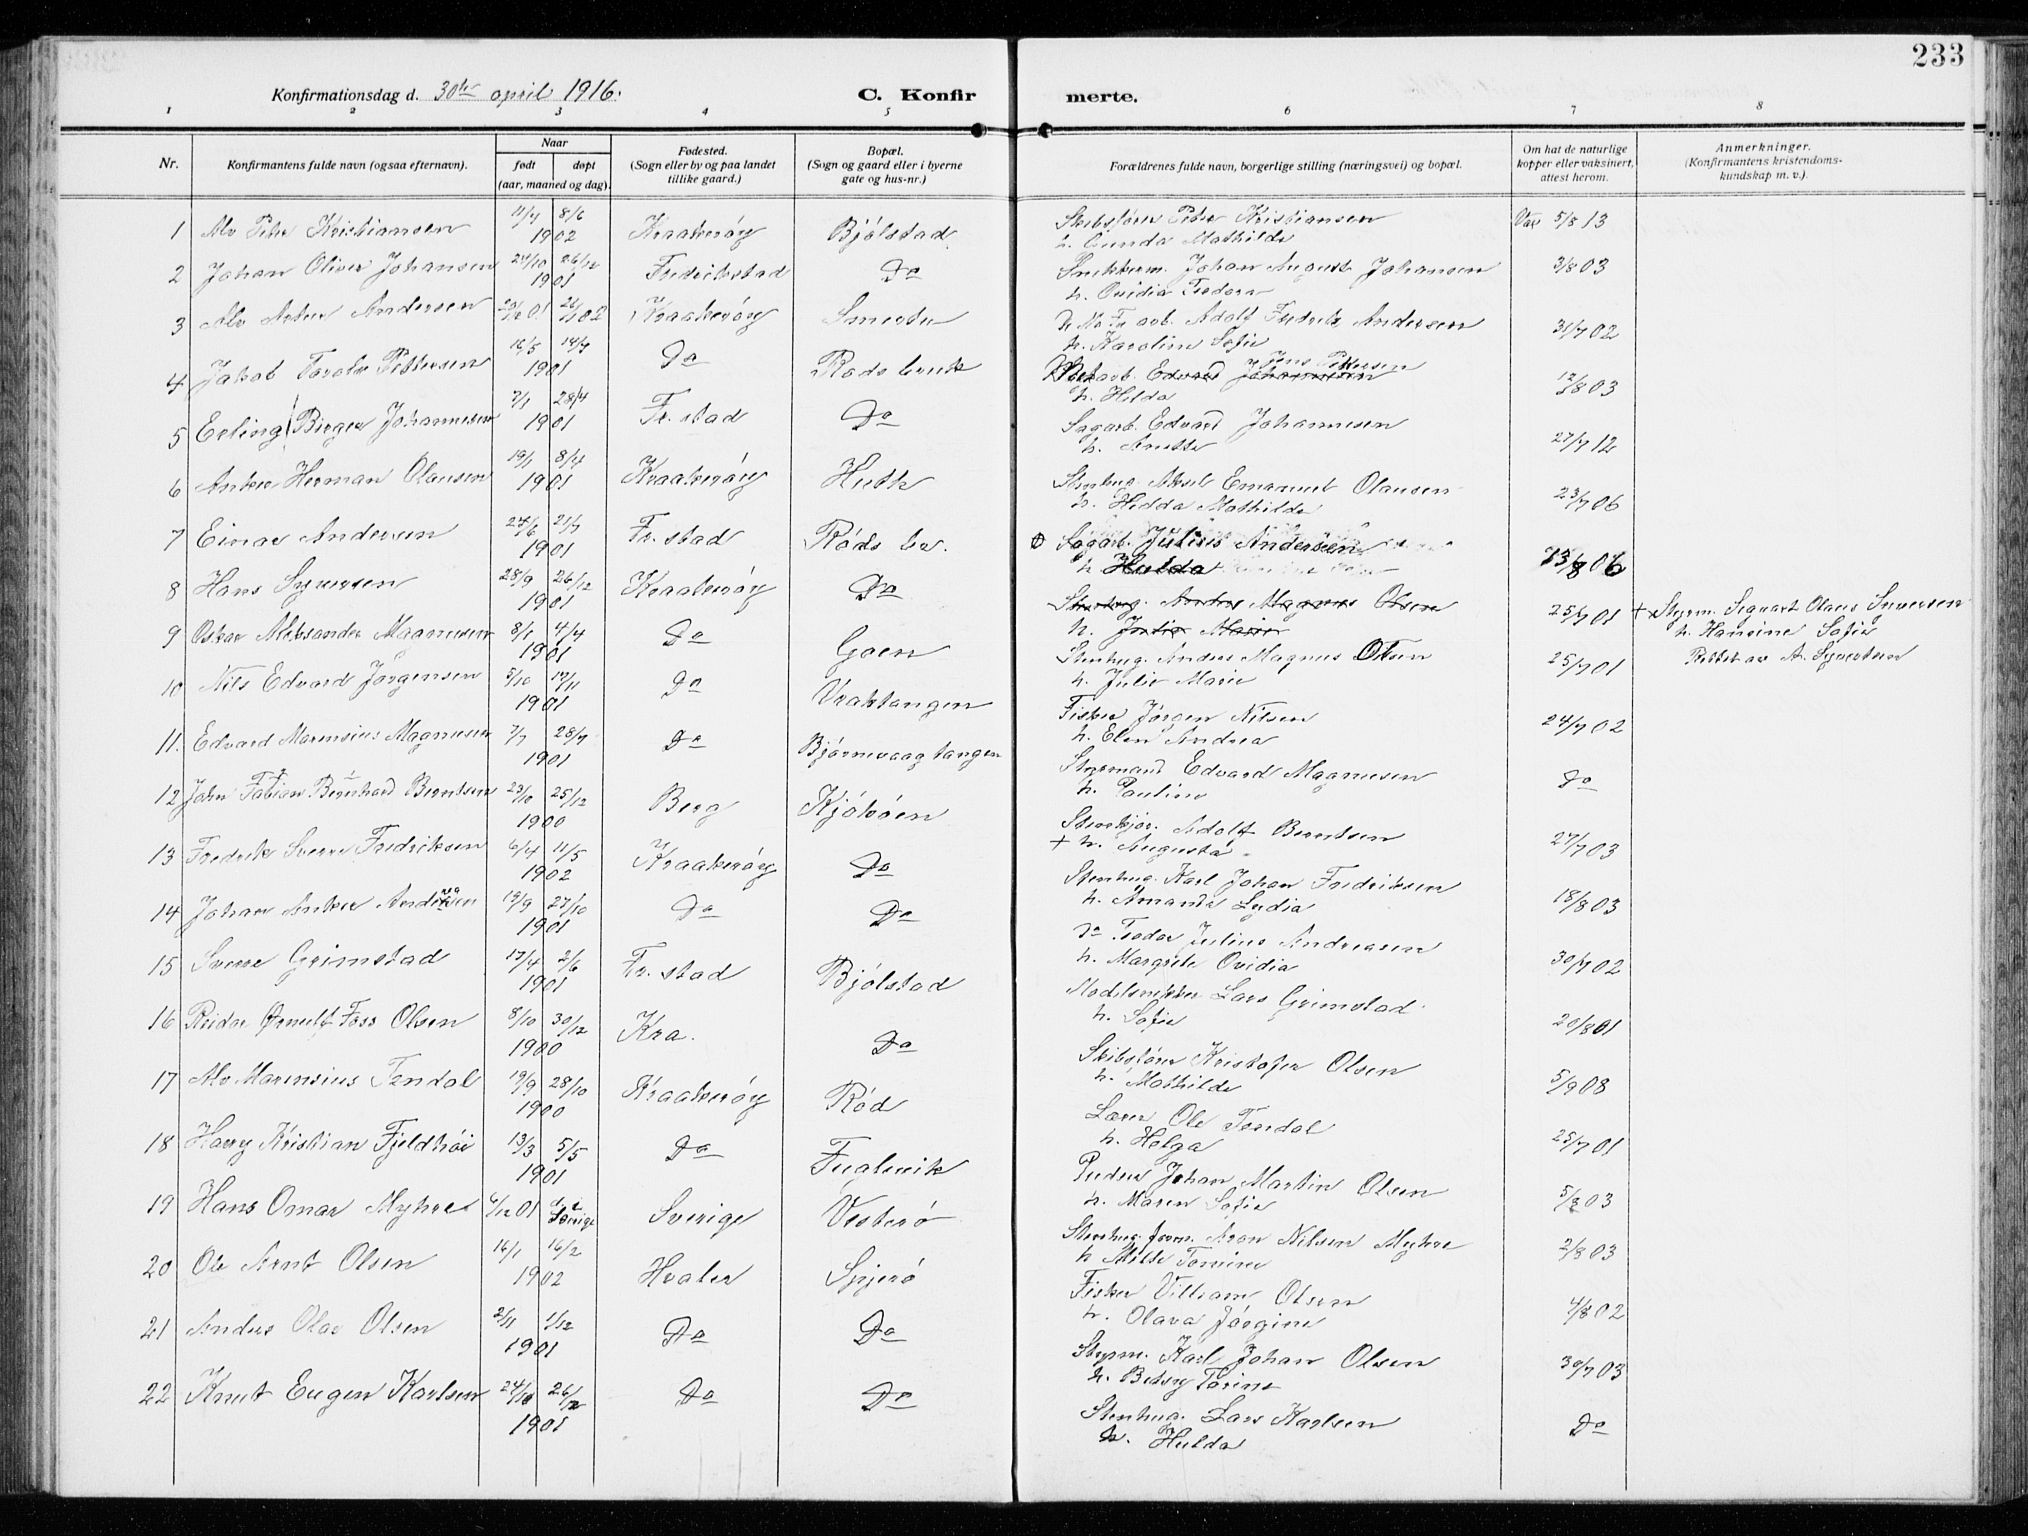 233
Konfirmationsdag d. 30te april 1916. C. Konfir merte.
1 2 3 4 5 6 7 8
Nr. Konfirmantens fulde navn (ogsaa efternavn). Naar født døpt (aar, maaned og dag). Fødested. (Sogn eller by og paa landet tillike gaard.) Bopæl. (Sogn og gaard eller i byerne gate og hus-nr.) Forældrenes fulde navn, borgerlige stilling (næringsvei) og bopæl. Om hat de naturlige kopper eller vaksinert, attest herom. Anmerkninger. (Konfirmantens kristendoms-kundskap m. v.).
1 Alv Peter Kristiansen 11/4 8/6 1902 Kraakerøy Bjølstad Skibsfører Peter Kristiansen Vax 5/8 13
h. Gunda Mathilde
2 Johan Oliver Johansen 24/10 26/12 1901 Fredrikstad Do Snekkerm. Johan August Johansen 3/8 03
h. Ovidia Teodora
3 Alv Arter Andersen 20/12 01 26/1 02 Kraakerøy Smertu arb. Adolf Fredrik Andersen 31/7 02
h. Karoline Sofie
4 Jakob Toralv Pettersen 16/5 14/7 1901 Do Røds bruk arb. Edvard Johannesen Jens Pettersen 12/8 03
h. Hilda
5 Erling Birger Johannesen 7/1 28/4 1901 Fr. stad Do Sagarb. Edvard Johannesen 27/7 12
h. Anette
6 Anker Herman Olausen 19/1 8/4 1901 Kraakerøy Huth Stenhug. Aksel Emanuel Olausen 23/7 06
h. Hedda Mathilde
7 Einar Andersen 24/6 21/7 1901 Fr. stad Røds br. Sagarb. Julius Andersen 13/8 06
h. Hulda
8 Hans Syversen 28/9 26/12 1901 Kraakerøy Do Stenhug. Anders Magnus Olsen 25/7 01 + Styrm. Sigvart Olaus Syversen
h. Julie Marie h. Hansine Sofie
9 Oskar Aleksander Magnusen 8/1 4/4 1901 Do Goen Stenhug. Anders Magnus Olsen 25/7 01 Rettet av A. Syvertsen
h. Julie Marie
10 Nils Edvard Jørgensen 5/10 17/11 1901 Do Vraktangen Fisker Jørgen Nilsen 24/7 02
h. Elen Andrea
11. Edvard Marensius Magnusen 7/7 28/7 1901 Do Bjørnevaagtangen Styrmand Edvard Magnusen Do
h. Pauline
12 John Fabian Bernhard Berntsen 23/10 25/12 1900 Berg Kjøkøen Stenkjør. Adolf Berntsen 27/7 03
+ h. Augusta
13 Fredrik Sverre Fredriksen 6/4 11/5 1902 Kraakerøy Do Stenhug. Karl Johan Fredriksen 18/8 03
h. Amanda Lydia
14 Johan Anker Andreasen 19/9 27/10 1901 Do Do Do Teodor Julius Andreasen 30/7 02
h. Margrete Ovidia
15 Sverre Grimstad 17/4 2/6 1901 Fr. stad Bjølstad Modelsnekker Lars Grimstad 20/8 01
h. Sofie
16 Reidar Ørnulf Foss Olsen 8/10 30/12 1900 Kra. Do Skibsfører Kristofer Olsen 5/9 08
h. Mathilde
17 Alv Marensius Tendal 19/9 28/10 1900 Kraakerøy Rød Lærer Ole Tendal 25/7 01
h. Helga
18 Harry Kristian Fjeldhøi 13/3 5/5 1901 Do Fuglevik Puder Johan Martin Olsen 5/8 03
h. Maren Sofie
19 Hans Osnar Myhre 4/12 01 Sverige Sverige Vesterø Stenhug. form. Aron Nilsen Myhre 2/8 03
h. Milde Tomine
20 Ole Arnt Olsen 16/1 16/2 1902 Hvaler Spjerø Fisker Villiam Olsen 4/8 02
h. Olava Jørgine
21 Anders Olav Olsen 2/11 1/12 1901 Do Do Styrm. Karl Johan Olsen 30/7 03
h. Betsy Torine
22 Knut Eugen Karlsen 24/10 26/12 1901 Do Do Stenhug. Lars Karlsen Do
h. Hulda